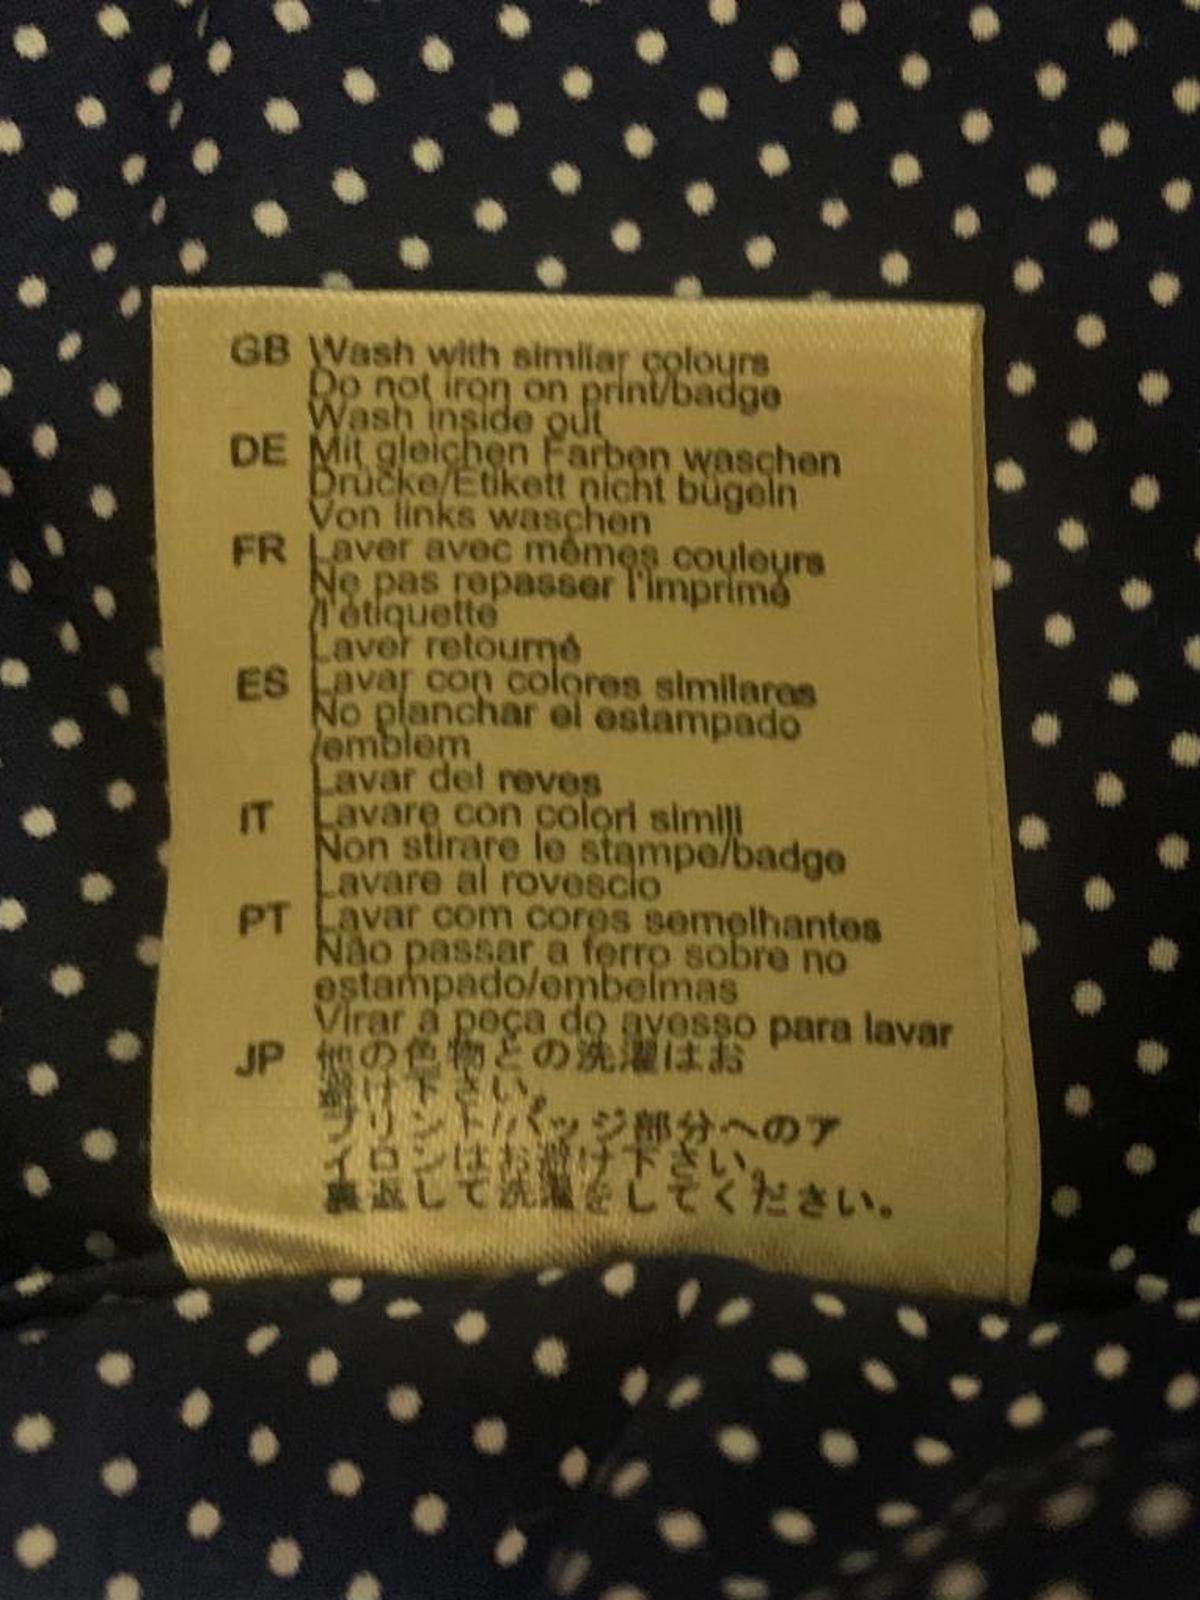 GB Wash with similar colours
Do not iron on print/badge
Wash inside out
DE Mit gleichen Farben waschen
Drucke/Etikett nicht bügeln
Von links waschen
FR Laver avec mêmes couleurs
Ne pas repasser l'imprimé
/l'étiquette
Laver retourné
ES Lavar con colores similares
No planchar el estampado
/emblem
Lavar del reves
IT Lavare con colori simili
Non stirare le stampe/badge
Lavare al rovescio
PT Lavar com cores semelhantes
Não passar a ferro sobre no
estampado/embelmas
Virar a peça do avesso para lavar
JP 他の色物との洗濯はお
避け下さい。
プリント/バッジ部分へのア
イロンはお避け下さい。
裏返して洗濯をしてください。